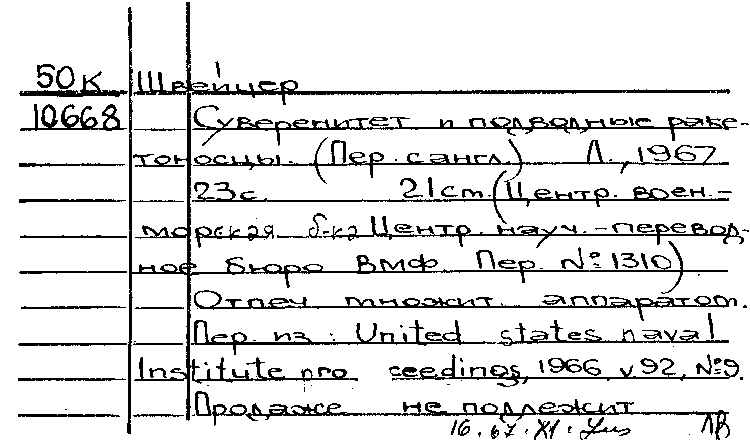 50К Швейцер
10668 Суверенитет и подводные раке-
тоносцы. (Пер. с англ.) Л., 1967
23с. 21cm. (Центр. воен.-
морская б-ка Центр. науч.-перевод-
ное бюро ВМФ. Пер. №1310)
Отпеч множит. аппаратом.
Пер. из: United states naval
Institute pro ceedings, 1966, v 92, №9.
Продаже не подлежит
16.67.XI. ЛВ